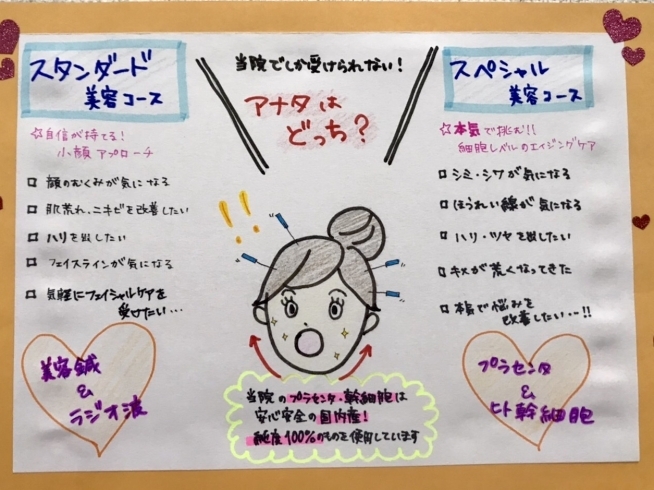 スタンダード
美容コース
☆自信が持てる！
小顔アプローチ
□ 顔のむくみが気になる
□ 肌荒れ、ニキビを改善したい
□ ハリを出したい
□ フェイスラインが気になる
□ 気軽にフェイシャルケアを
受けたい…
美容鍼
&
ラジオ波
当院でしか受けられない！
アナタは
どっち？
スペシャル
美容コース
☆本気で挑む!!
細胞レベルのエイジングケア
□ シミ・シワが気になる
□ ほうれい線が気になる
□ ハリ・ツヤを出したい
□ キメが荒くなってきた
□ 本気で悩みを
改善したい…!!
プラセンタ
&
ヒト幹細胞
当院のプラセンタ・幹細胞は
安心安全の国内産！
純度100%のものを使用しています